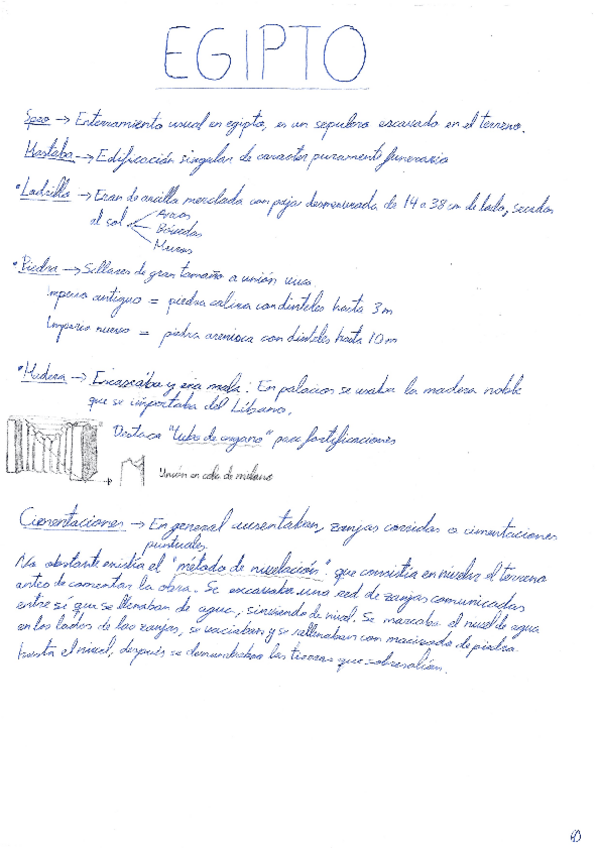 EGIPTO
Speo → Enterramiento usual en egipto, es un sepulcro excavado en el terreno.
Mastaba → Edificación singular de caracter puramente funerario
• Ladrillo → Eran de arcilla mezclada con paja desmenuzada de 14 a 38 cm de lado, secados
al sol
Arcos
Bóvedas
Muros
• Piedra → Sillares de gran tamaño a unión viva.
Imperio antiguo = piedra caliza con dinteles hasta 3 m
Imperio nuevo = piedra arenisca con dinteles hasta 10 m
• Madera → Escaseaba y era mala. En palacios se usaba la madera noble
que se importaba del Líbano.
Destaca "tubo de organo" para fortificaciones
→ Unión en cola de milano
Cimentaciones → En general ausentaban, zanjas corridas o cimentaciones
puntuales.
No obstante existía el "método de nivelación" que consistía en nivelar el terreno
antes de comentar la obra. Se excavaba una red de zanjas comunicadas
entre sí que se llenaban de agua, sirviendo de nivel. Se marcaba el nivel de agua
en los lados de las zanjas, se vaciaban y se rellenaban con macizado de piedra
hasta el nivel, después se derrumbaban las tierras que sobresalían.